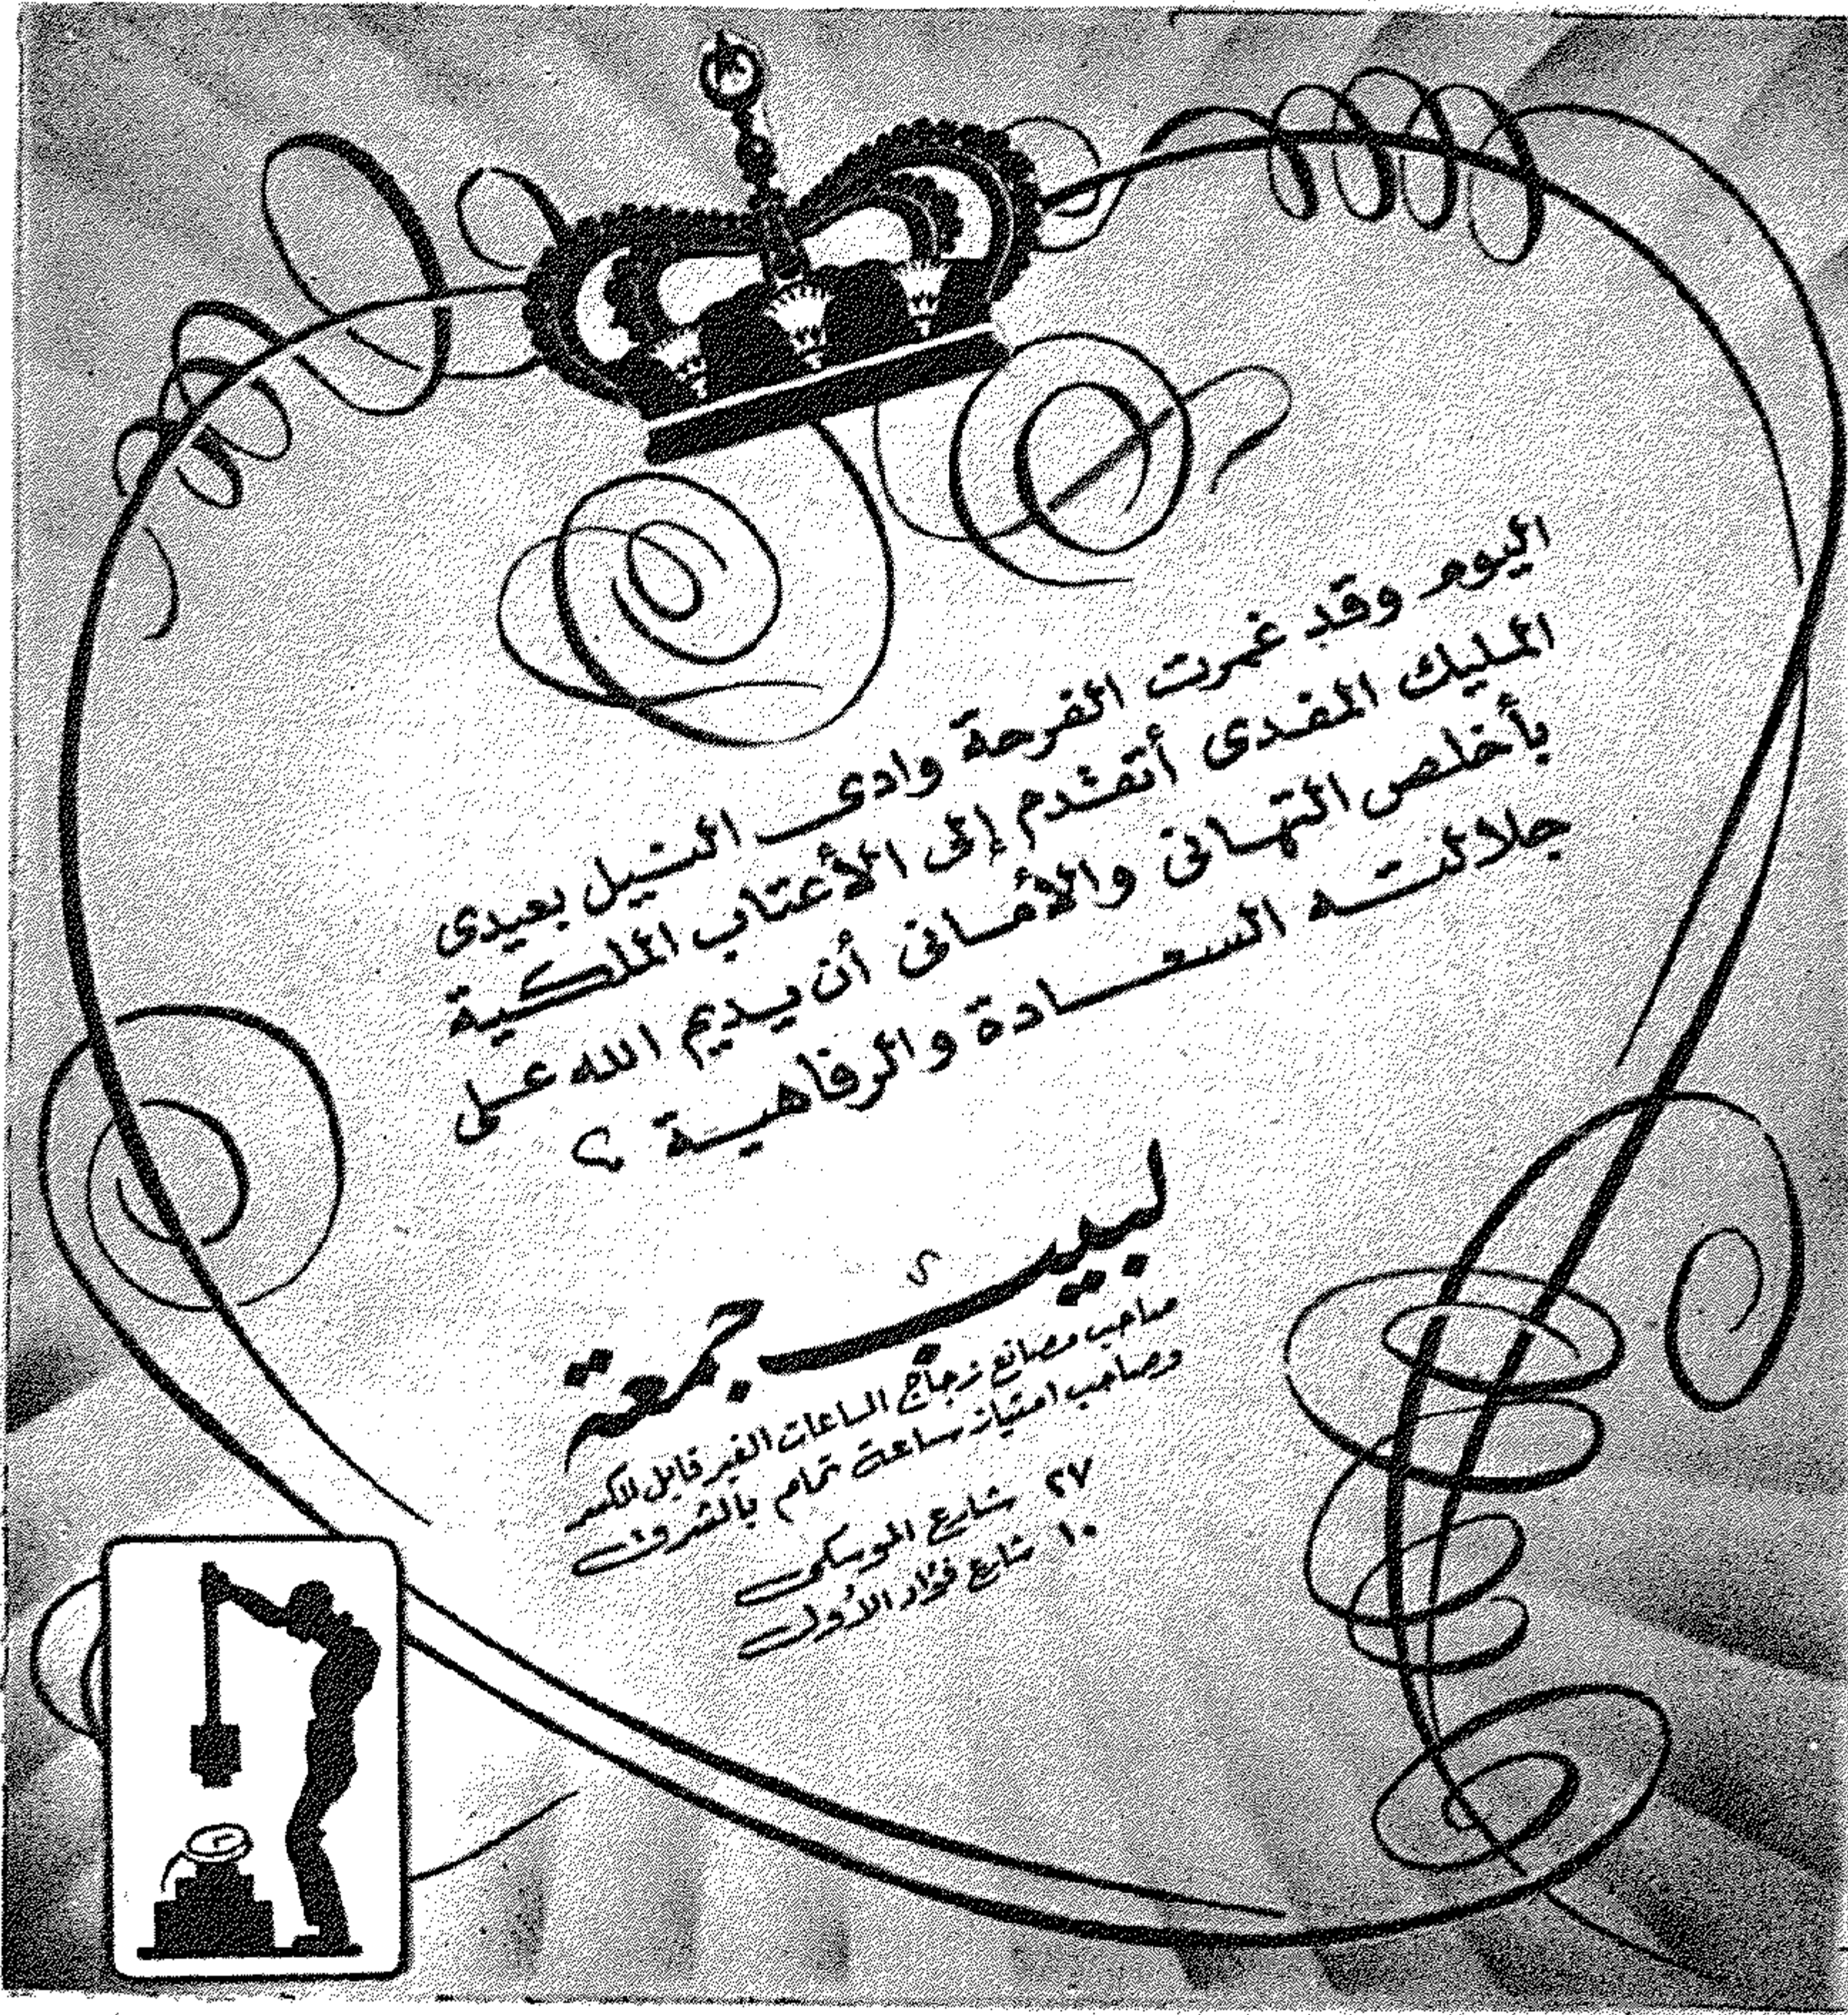 اليوم وقد غمرت الفرحة وادى النيل بعيدى
المليك المفدى أتقدم إلى الأعتاب الملكية
بأخلص التهانى والأمانى أن يديم الله على
جلالته السعادة والرفاهية
لبيب جمعة
صاحب مصانع زجاج الساعات الغير قابل للكسر
وصاحب امتياز ساعة تمام بالشرق
٢٧ شارع الموسكى
١٠ شارع فؤاد الأول